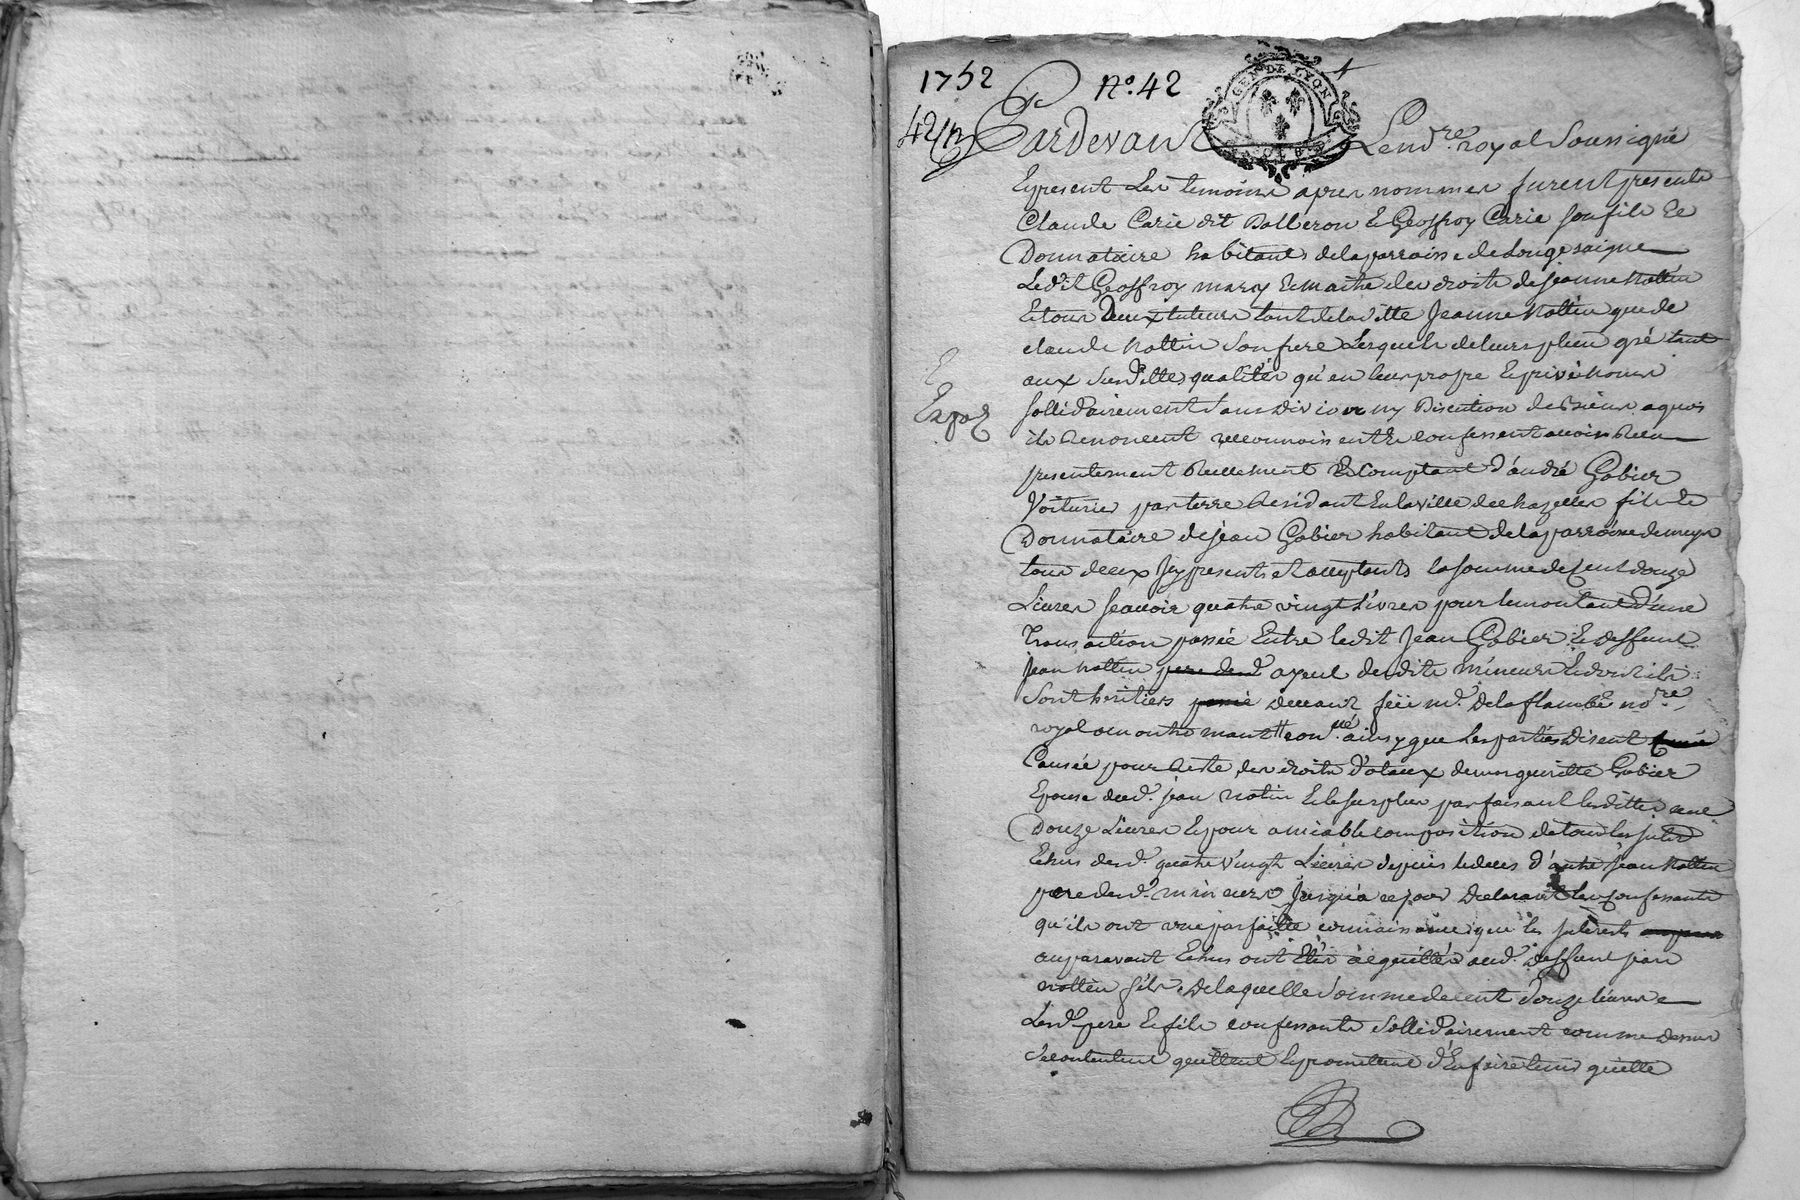 1752 No. 42
GEN. DE LYON
42
Pardevant Le nore. royal soussigné
Et present Les temoins apres nommes furent presents
Claude Carie dit Balleron et Geoffroy Carie son fils et
Donnataire habitants de la parroisse de Longesaigne
Ledit Geoffroy mary et maitre des droits de jeanne Nottin
Et tous Deux tuteurs tant de laditte Jeanne Nottin que de
claude Nottin son frere Lesquels de leurs plein gré tant
aux susdittes qualités qu'en leur propre et privé noms
sollidairement sans Division ny Discution de Biens a quoy
Expoé
ils Renoncent reconnaissent et confessent avoir Recu
presentement Reellement et comptant d'andré Gobier
Voiturier par terre Residant En la ville de chazelles fils et
Donnataire de jean Gobier habitant de la parroisse de meys
tous deux Icy presents et acceptants la somme de Cent douze
Livres scavoir quatre vingt Livres pour le montant d'une
Transaction passée Entre ledit Jean Gobier et deffunt
Jean Nottin pere desd. ayeul desdits mineurs et dont ils
sont heritiers devant feü md. Delaflambe nore.
royal ainsy que Les parties disent
Causée pour Reste des droits dotaux de margueritte Gobier
Epouse dud. jean Notin et le surplus parfaisant lesdittes cent
Douze Livres Et pour amiable composition de tous les jnterets
Echus desd. quatre vingt Livres depuis le deces d'autre Jean Nottin
pere desd. mineurs Jusqu'a ce jour Declarant les confessants
qu'ils ont une parfaitte connaissance que les jnterests
auparavant Echus ont Etés acquittés aud. deffunt jean
nottin fils. De laquelle somme de cent douze livres
Lesd. pere et fils confessants sollidairement comme dessus
se contentent quittent et promettent d'En faire tenir quitte